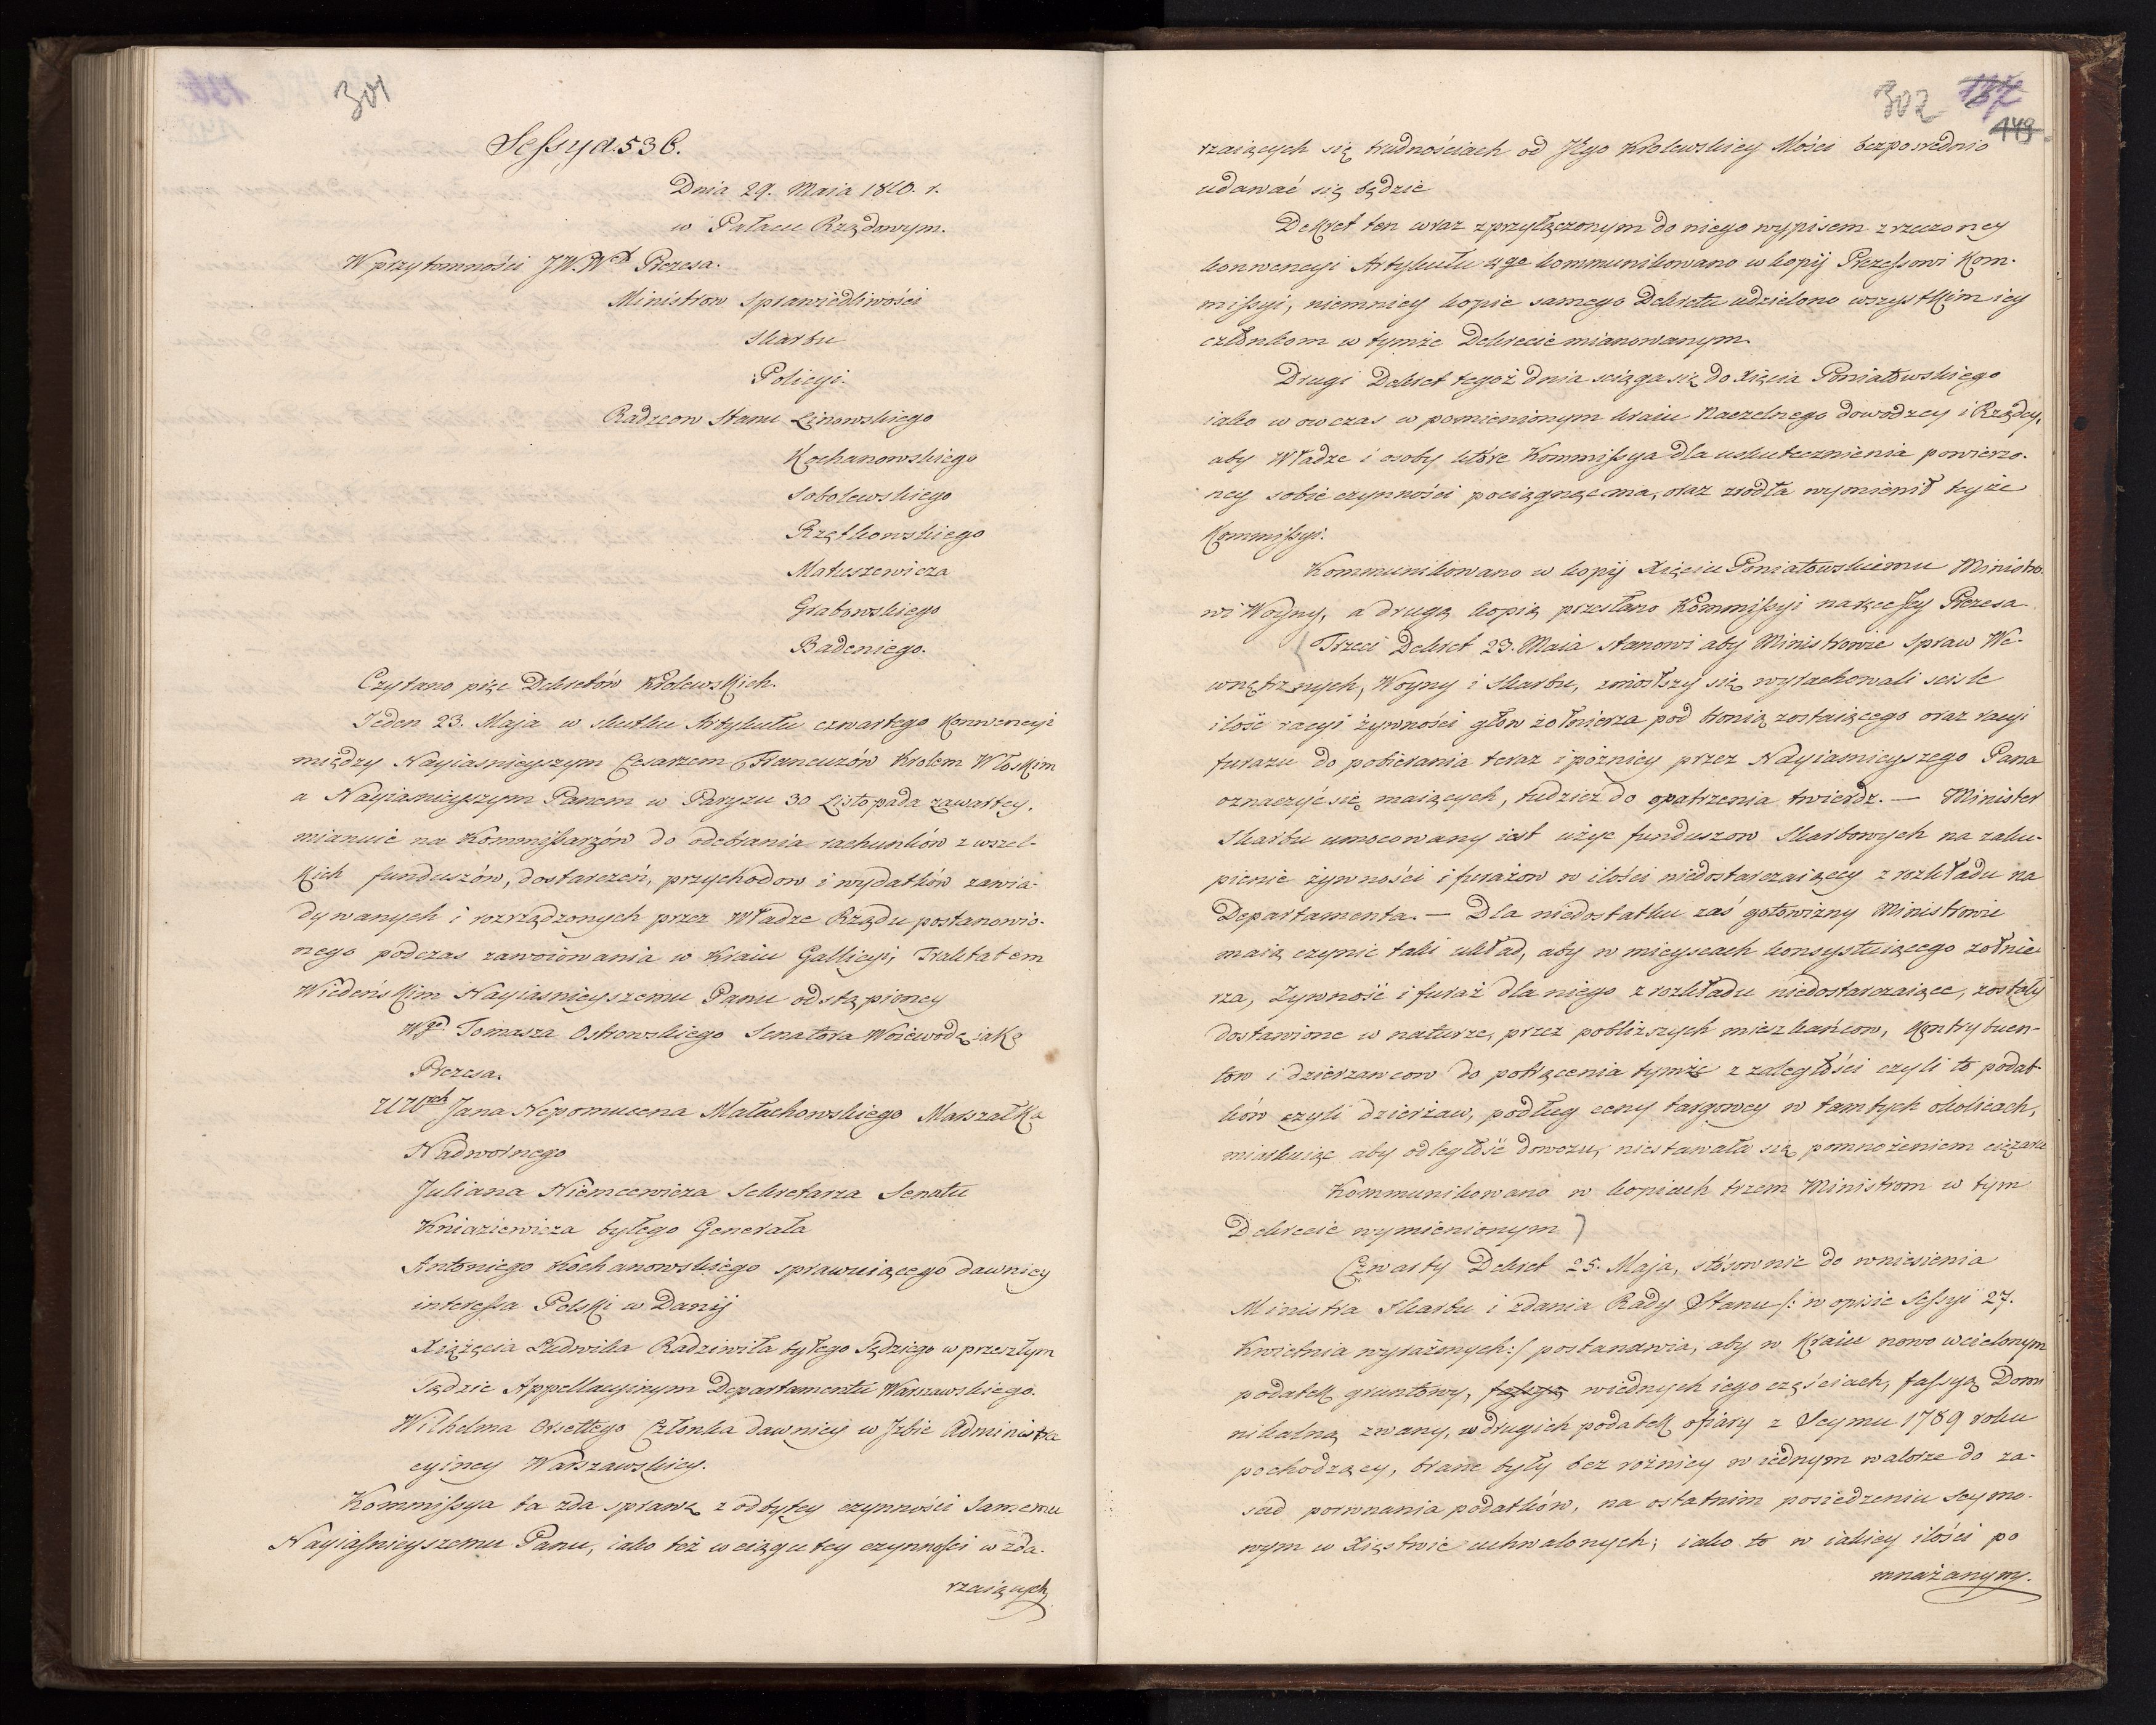 301
Sessya 536.
Dnia 29. Maia 1810. r.
w Pałacu Rządowym.
W przytomności JW. Prezesa.
Ministrow Sprawiedliwości
Skarbu
Policyi.
Radzcow Stanu Linowskiego
Kochanowskiego
Sobolewskiego
Rzętkowskiego
Matuszewicza
Grabowskiego
Badeniego.
Czytano pięć Dekretów Królewskich.
Jeden 23. Maja w skutku Artykułu czwartego Konwencyi
między Nayiasnieyszym Cesarzem Francuzów Krolem Włoskim
a Nayiasnieyszym Panem w Paryzu 30 Listopada zawartey,
mianuie na Kommissarzów do odebrania rachunków z wszel-
kich funduszów, dostarczeń, przychodow i wydatków zawia-
dywanych i rozrządzonych przez Władze Rządu postanowio-
nego podczas zawoiowania w Kraiu Gallicyi, Traktatem
Wiedeńskim Nayiasnieyszemu Panu odstąpioney
Wgo Tomasza Ostrowskiego Senatora Woiewodę jako
Prezesa.
Jana Nepomucena Małachowskiego Marszałka
Nadwornego
Juliana Niemcewicza Sekretarza Senatu
Kniaziewicza byłego Generała
Antoniego Kochanowskiego sprawuiącego dawniey
interessa Polski w Danij
Xiążęcia Ludwika Radziwiła byłego Sędziego w przeszłym
Sądzie Appellacyinym Departamentu Warszawskiego.
Wilhelma Orsettego Członka dawniey w Jzbie Administra
cyiney Warszawskiey.
Kommissya ta zda sprawę z odbytey czynności Samemu
Nayiasnieyszemu Panu, iako też w ciągu tey czynności w zda-
rzaiących
302 137
149
rzaiących się trudnościach od Jego Krolewskiey Mości bezposrednio
udawać się będzie
Dekret ten wraz z przyłączonym do niego wypisem z rzeczoney
konwencyi Artykułu 4go kommunikowano w kopij Prezessowi Kom-
missyi, niemniey kopie samego Dekretu udzielono wszystkim iey
członkom w tymże Dekrecie mianowanym.
Drugi Dekret tegoż dnia sciąga się do Xięcia Poniatowskiego
iako w owczas w pomienionym kraiu Naczelnego dowodzcy i Rządcy,
aby Władze i osoby które Kommissya dla uskutecznienia powierzo-
ney sobie czynności pociągnąć ma, oraz zrodła wymienił teyże
Kommissyi.
Kommunikowano w kopij Xięciu Poniatowskiemu Ministro-
wi Woyny, a drugą kopią przesłano Kommissyi na ręce Jey Prezesa
Trzeci Dekret 23. Maia stanowi aby Ministrowie Spraw We-
wnętrznych, Woyny i Skarbu, zniosłszy się wyrachowali scisle
ilość racyi żywności głow żołnierza pod bronią zostaiącego oraz racyi
furazu do pobierania teraz i pózniey przez Nayiasnieyszego Pana
oznaczyć się maiących, tudzież do opatrzenia twierdz. — Minister
Skarbu umocowany iest użyć funduszow Skarbowych na zaku-
pienie żywności i furażow w ilości niedostarczaiącey z rozkładu na
Departamenta. — Dla niedostatku zaś gotowizny Ministrowie
maią czynić taki układ, aby w mieyscach konsystuiącego zołnie-
rza, Zywność i furaż dla niego z rozkładu niedostarczaiące, zostały
dostawione w naturze, przez pobliższych mieszkańcow, Kontrybuen-
tow i dzierzawcow do potrącenia tymże z zaległości czyli to podat-
ków czyli dzierżaw, podług ceny targowey w tamtych okolicach,
miarkuiąc aby odległość dowozu, niestawała się pomnożeniem ciężaru
Kommunikowano w kopiach trzem Ministrom w tym
Dekrecie wymienionym
Czwarty Dekret 25. Maja, stosownie do wniesienia
Ministra Skarbu i zdania Rady Stanu /: w opisie Sessyi 27.
Kwietnia wyrażonych :/ postanawia, aby w Kraiu nowo wcielonym
podatek gruntowy, w iednych iego częściach, fassyą Domi
nikalną zwany, w drugich podatek ofiary z Seymu 1789 roku
pochodzący, brane były bez rożnicy w iednym walorze do za-
sad porownania podatków, na ostatnim posiedzeniu Seymo-
wym w Xięstwie uchwalonych; iako to w iakiey ilości po
mnażanymy.